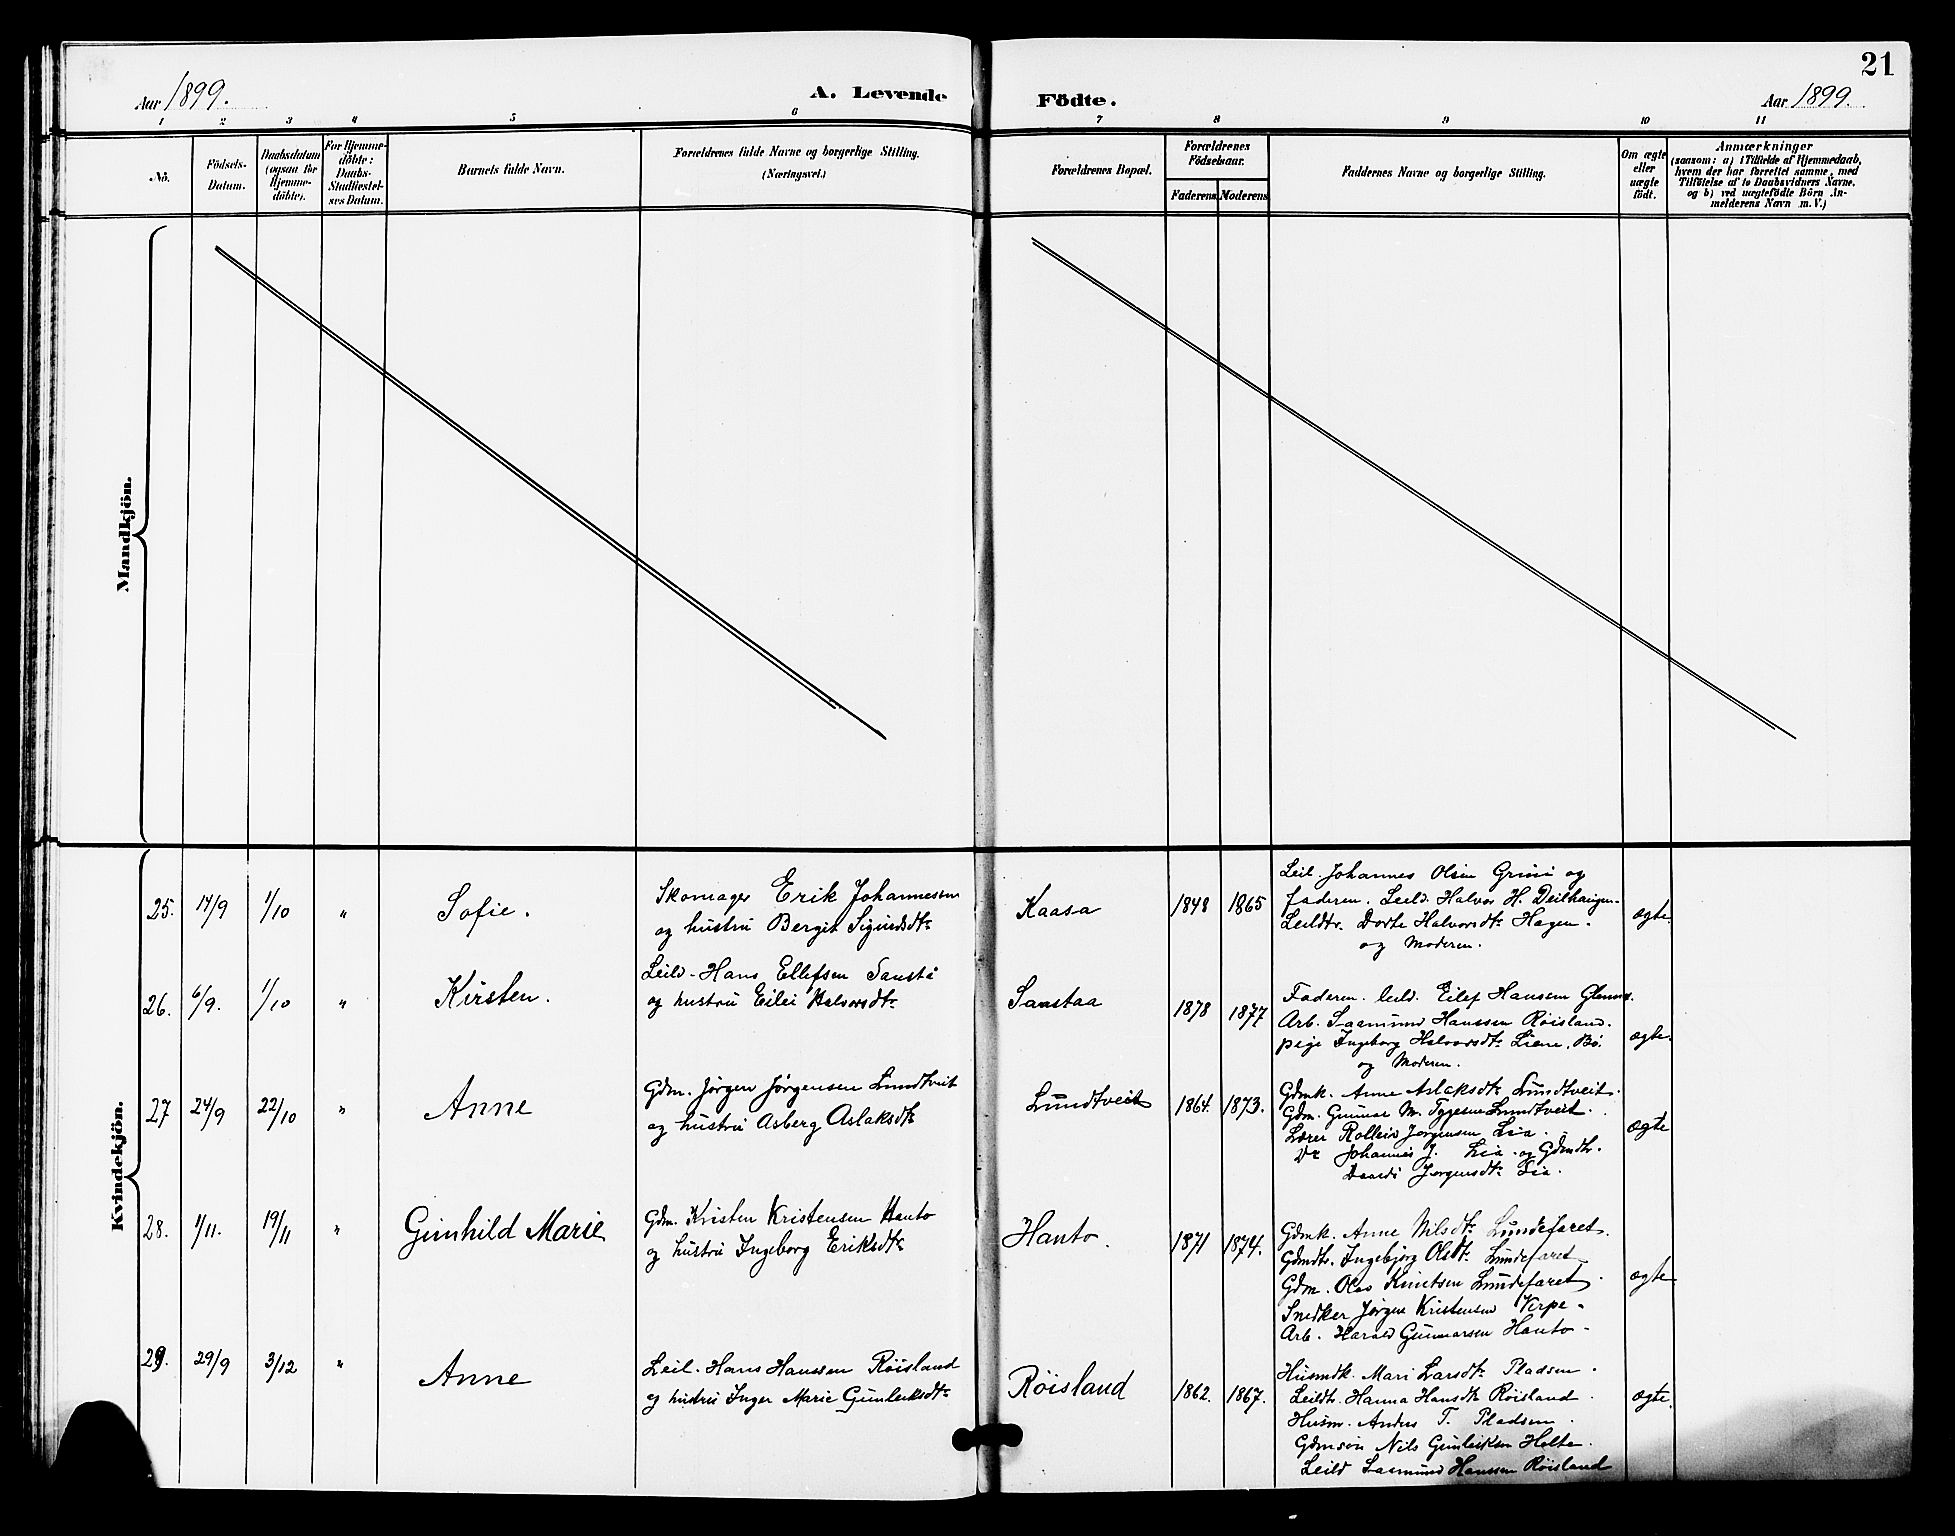 21
Aar 1899.
A. Levende
Födte.
Aar 1899.
1 2 3 4 5 6 7 8 9 10 11
No.
Födsels-
Datum.
Daabsdatum
(ogsaa for
Hjemme-
döbte).
For Hjemme-
döbte:
Daabs-
Stadfæstel-
ses Datum.
Barnets fulde Navn.
Forældrenes fulde Navne og borgerlige Stilling.
(Næringsvei.)
Forældrenes Bopæl.
Forældrenes
Födselsaar.
Faderens. Moderens.
Faddernes Navne og borgerlige Stilling.
Om ægte
eller
uægte
födt.
Anmærkninger
(saasom: a) i Tilfælde af Hjemmedaab,
hvem der har forrettet samme, med
Tilföielse af to Daabsvidners Navne,
og b) ved uægtefödte Börn An-
melderens Navn m. V.)
Mandkjön.
Kvindekjön.
25. 14/9 1/10 " Sofie.
Skomager Erik Johannessen
og hustru Bergit Sigurdsdtr
Kaasa 1848 1865
Leil. Johannes Olsen Grini og
faderen. Leild. Halvor H. Deilhaugen.
Leildtr. Dorte Halvorsdtr Hagen.
og Moderen.
ægte.
26. 6/9. 1/10 " Kirsten.
Leild. Hans Ellefsen Sanstå
og hustru Eilei Halvorsdtr
Sanstaa 1878 1877
Faderen. leild. Eilef Hansen
Arb. Saamund Hanssen Röisland.
pige Ingeborg Halvorsdtr Liene, Bö.
og Moderen.
ægte.
27 24/9 22/10 " Anne
Gdm. Jörgen Jörgensen Lundtveit
og hustru Asberg Aslaksdtr
Lundtveit 1864. 1873.
Gdmk. Anne Aslaksdtr Lundtveit.
Gdm. Gunnar M. Tygesen Lundtveit.
Lærer Rolleiv Jorgensen Lia.
Do Johannes J. Lia. og Gdmdtr.
Jorgensdtr Lia.
ægte
28. 1/11. 19/11 " Gunhild Marie
Gdm. Kristen Kristensen Hanto
og hustru Ingeborg Eriksdtr
Hanto. 1871 1874.
Gdmk. Anne Nilsdtr Lundefaret.
Gdmdtr. Ingebjorg Olsdtr Lundefaret
Gdm. Olav Knutsen Lundefaret.
Snedker Jörgen Kristensen Verpe.
Arb. Harald Gunnarsen Hanto.
ægte
29. 29/9 3/12 " Anne
Leil. Hans Hanssen Röisland
og hustru Inger Marie Gunleiksdtr
Röisland 1862. 1867.
Husmdk. Mari Larsdtr Pladsen.
Leildtr. Hanna Hansdtr Röisland.
Husm. Anders T. Pladsen.
Gdmsön Nils Gunleiksen Holte.
Leild Saamund Hanssen Röisland
ægte.